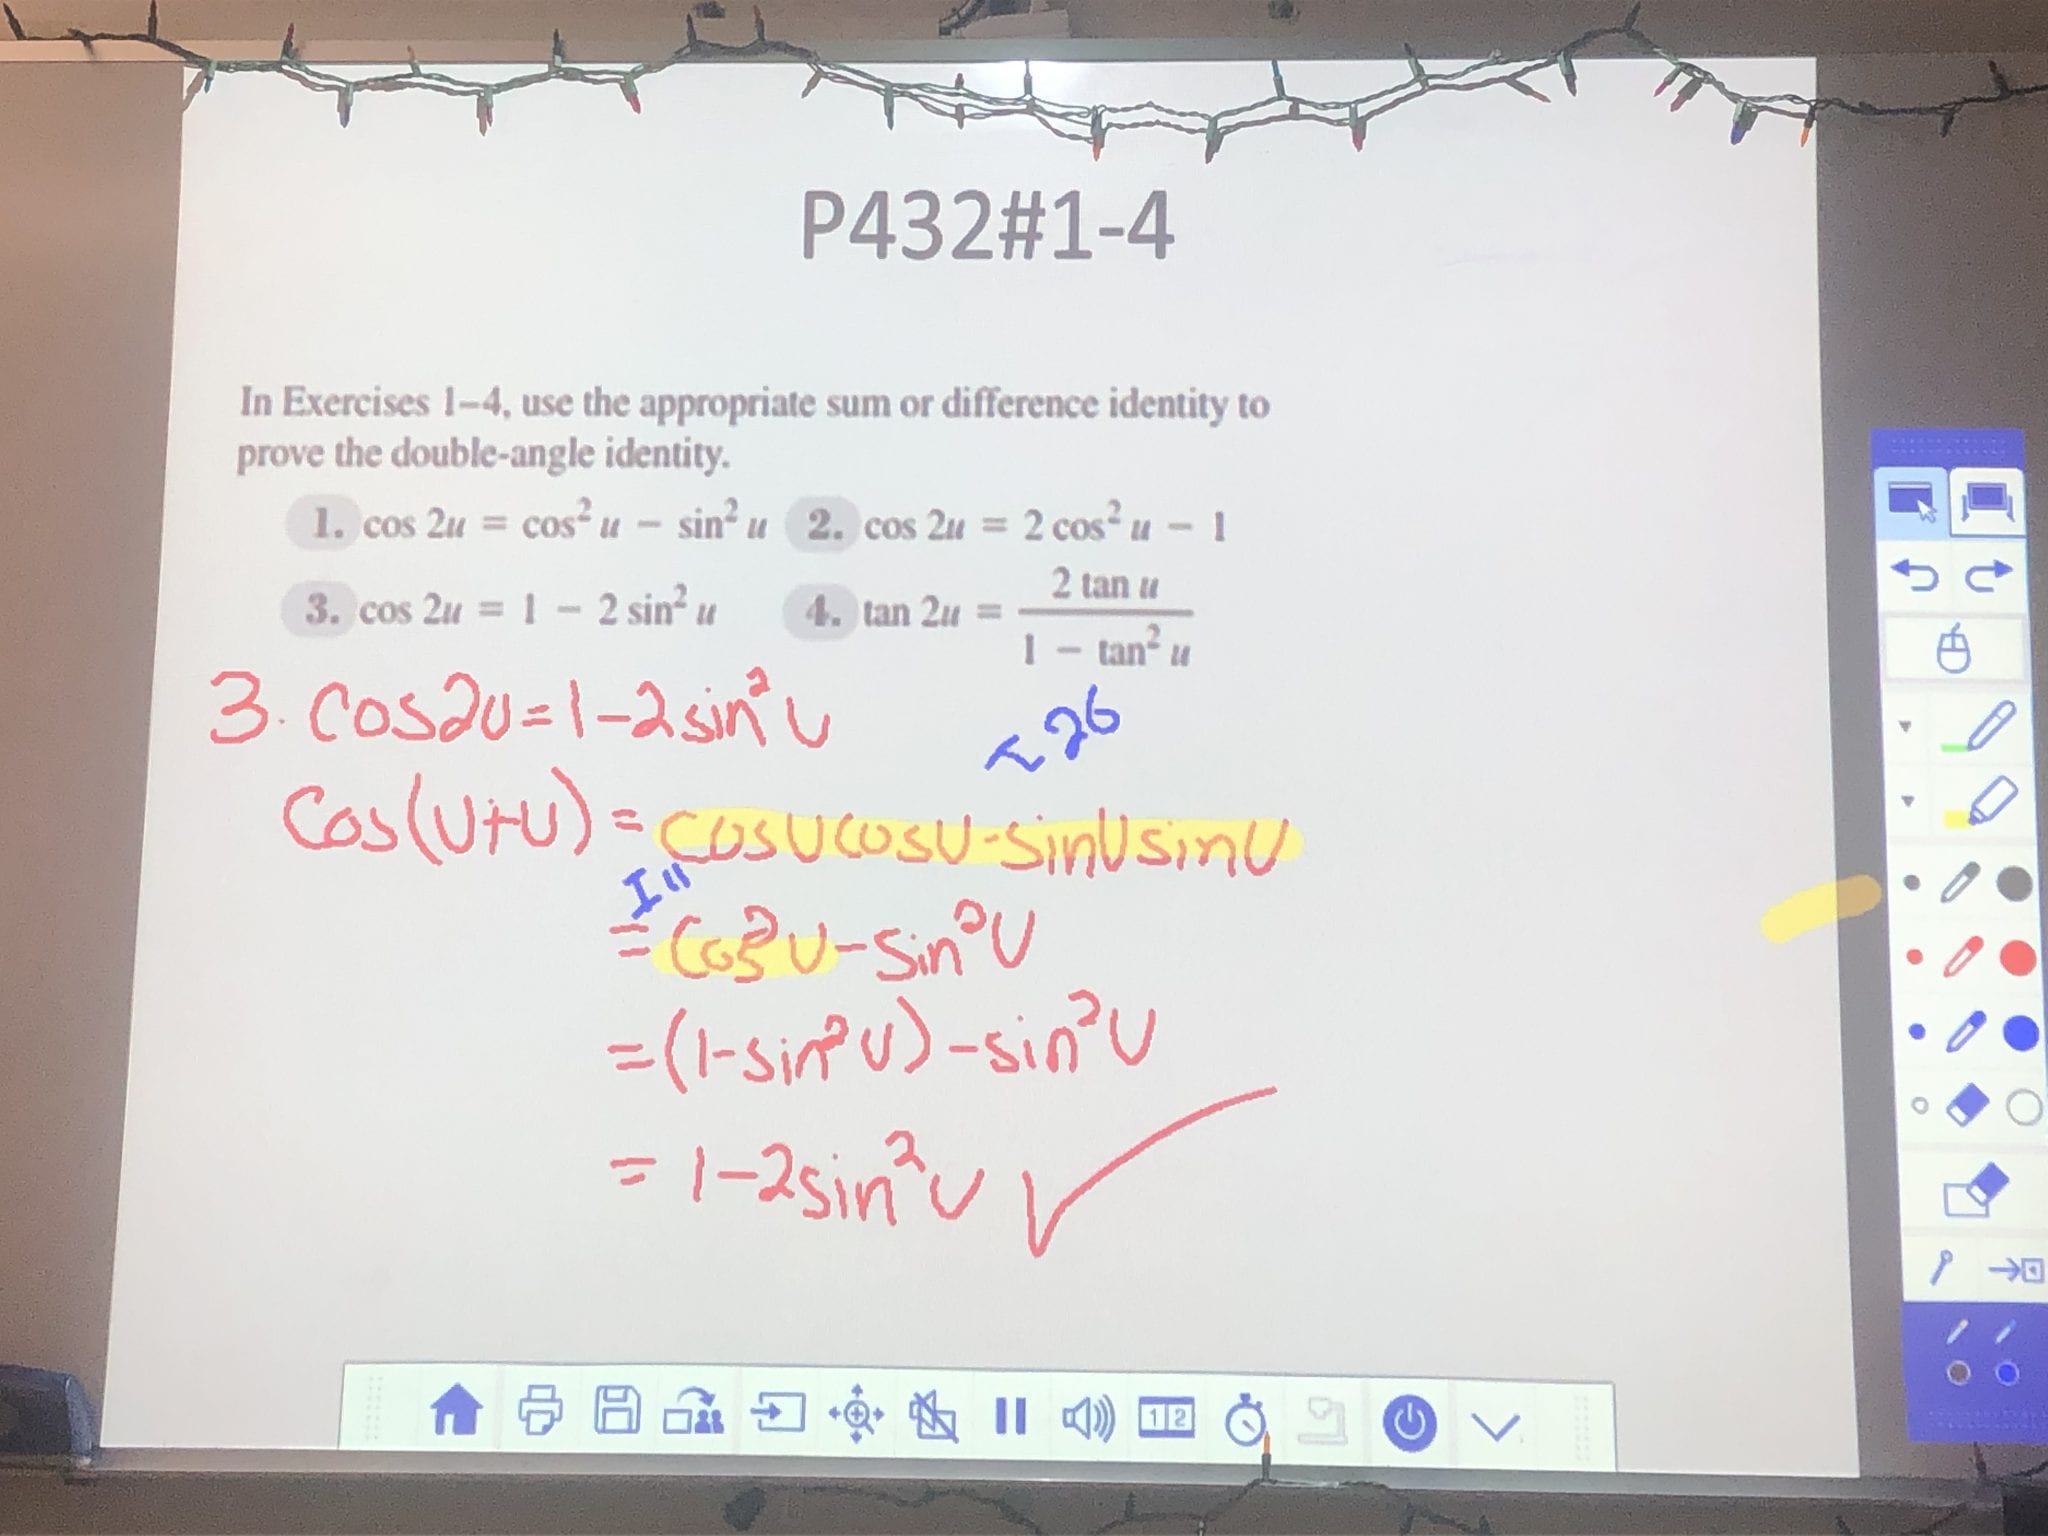 P432#1-4
In Exercises 1–4, use the appropriate sum or difference identity to
prove the double-angle identity.
1. cos 2u = cos² u − sin² u 2. cos 2u = 2 cos² u − 1
3. cos 2u = 1 − 2 sin² u 4. tan 2u = 2 tan u / 1 − tan² u
3. Cos2U=1-2sin²U
I26
Cos(U+U)=cosUcosU-sinUsinU
I11
=Cos²U-sin²U
=(1-sin²U)-sin²U
=1-2sin²U ✓
1 2